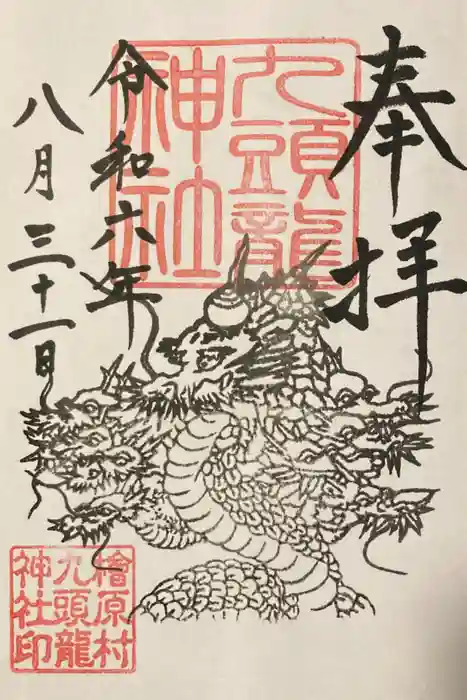 奉拝
九頭龍
神社
令和六年
八月三十一日
檜原村
九頭龍
神社印